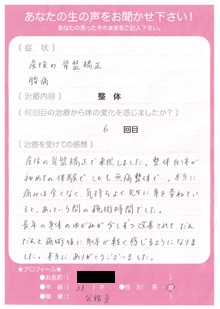 あなたの生の声をお聞かせ下さい!
あなたの思ったそのままをご記入下さい。
(症 状)
産後の骨盤矯正
腰痛
(治療内容) 整 体
(何回目の治療から体の変化を感じましたか?)
6 回目
(治療を受けての感想)
産後の骨盤矯正で来院しました。整体自体が
初めての体験で、しかも無痛整体で…、本当に
痛みは全くなく、気持ちよく先生に身を委ねてい
ると、あっという間の施術時間でした。
長年の身体のゆがみが少しずつ改善されて だん
だんと施術後に身体が軽く感じるようになりまし
た。本当にありがとうございました。
★プロフィール★
●お名前( )
●年 齢( ) ●性 別(男・女)
●ご職業( 公務員 )